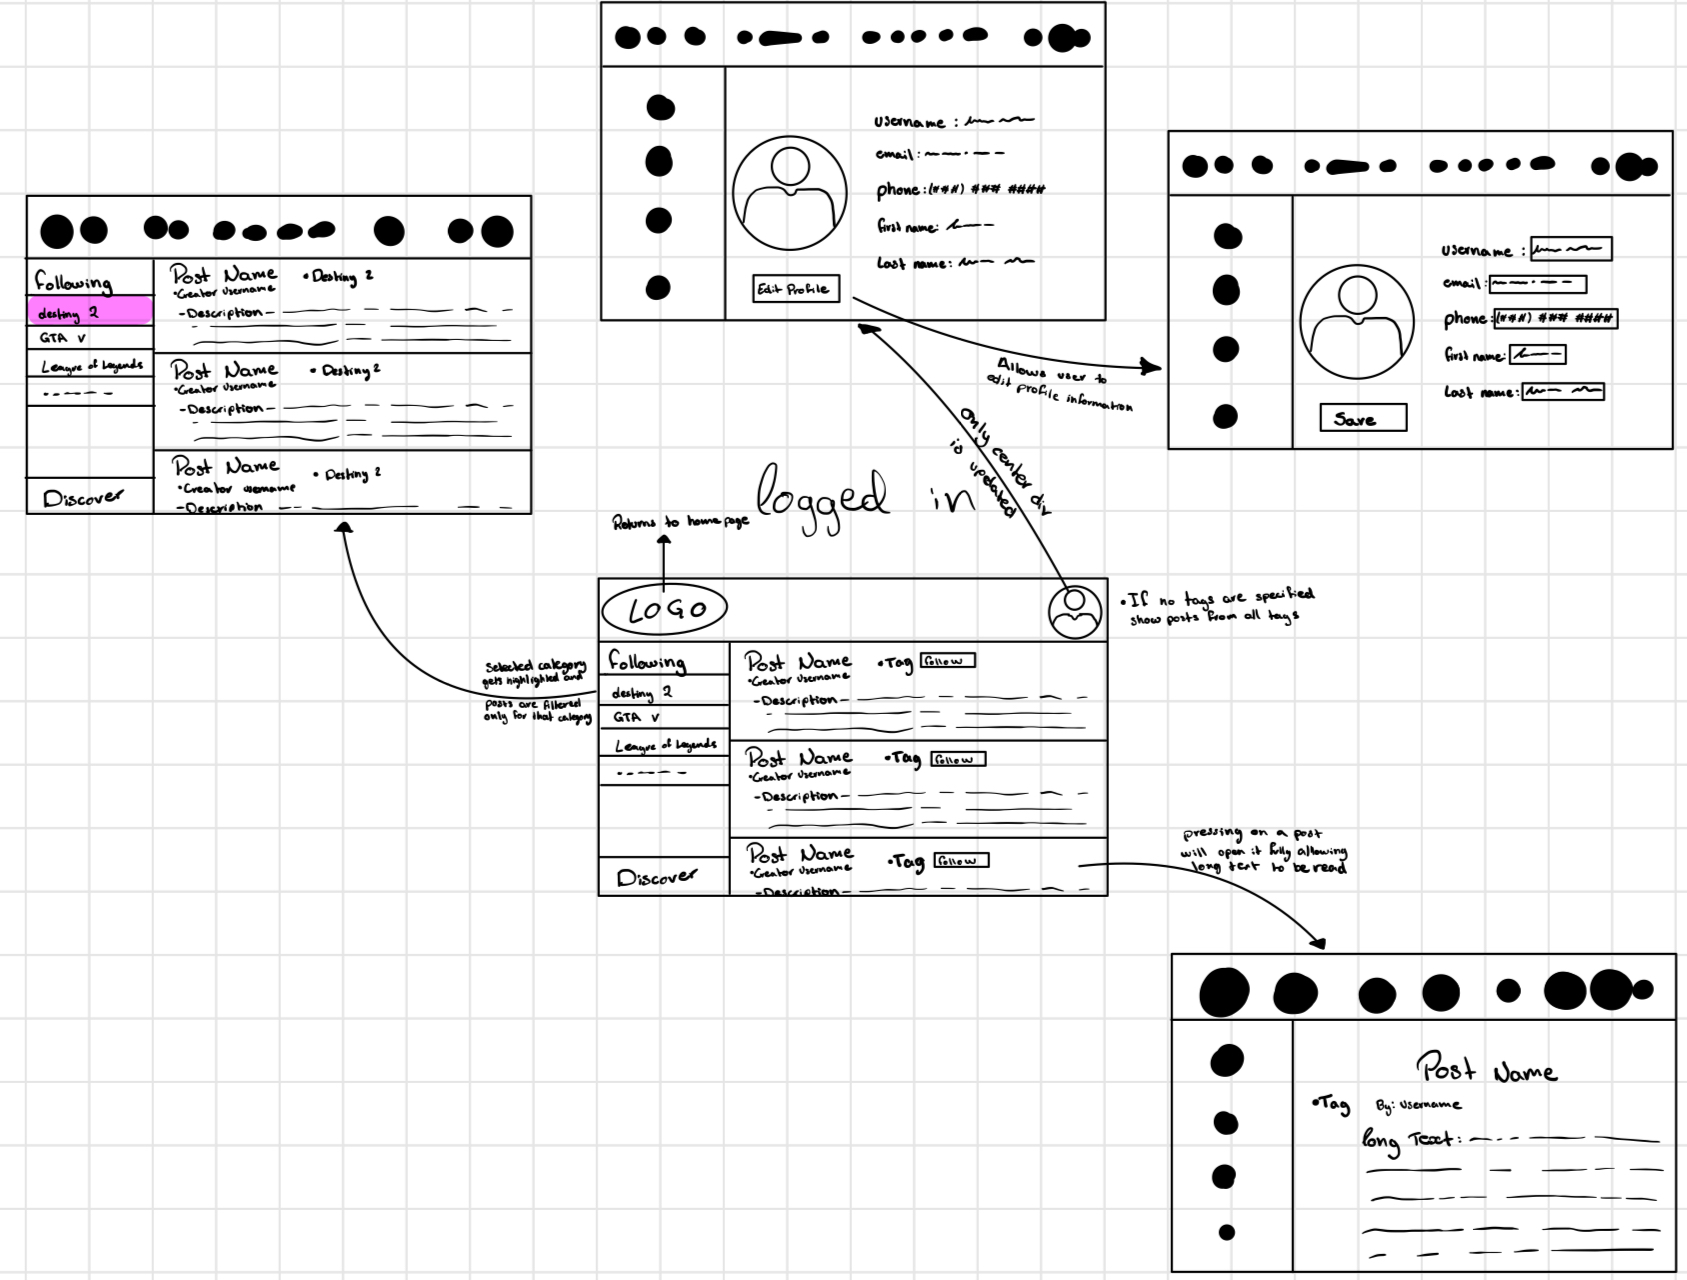 username :
email:
phone:(###) ### ####
first name:
Last name:
Edit Profile
Allows user to
edit profile information
username :
email:
phone:(###) ### ####
first name:
Last name:
Save
Following
destiny 2
GTA V
League of Legends
Discover
Post Name
• Destiny 2
•Creator Username
-Description-
Post Name
• Destiny 2
•Creator Username
-Description-
Post Name
• Destiny 2
•Creator username
-Description
only center div
is updated
logged in
Returns to home page
LOGO
•If no tags are specified
show posts from all tags
Selected category
gets highlighted and
posts are filtered
only for that category
Following
destiny 2
GTA V
League of Legends
Discover
Post Name
•Tag
follow
•Creator Username
-Description-
Post Name
•Tag
follow
•Creator Username
-Description-
Post Name
•Tag
follow
•Creator Username
-Description-
pressing on a post
will open it fully allowing
long text to be read
Post Name
•Tag
By: Username
long Text: